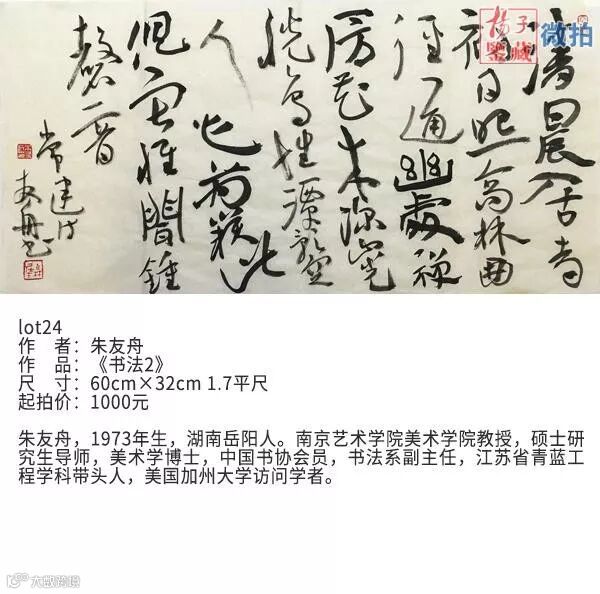 清晨入古寺
初日照高林曲
徑通幽處禅
房花木深山光
悦鸟性潭影空
人心万籁此
俱寂惟聞鍾
磬音
常建诗
友舟书
揚子
鑒藏
微拍
lot24
作 者：朱友舟
作 品：《书法2》
尺 寸：60cm×32cm 1.7平尺
起拍价：1000元
朱友舟，1973年生，湖南岳阳人。南京艺术学院美术学院教授，硕士研
究生导师，美术学博士，中国书协会员，书法系副主任，江苏省青蓝工
程学科带头人，美国加州大学访问学者。
大数跨境